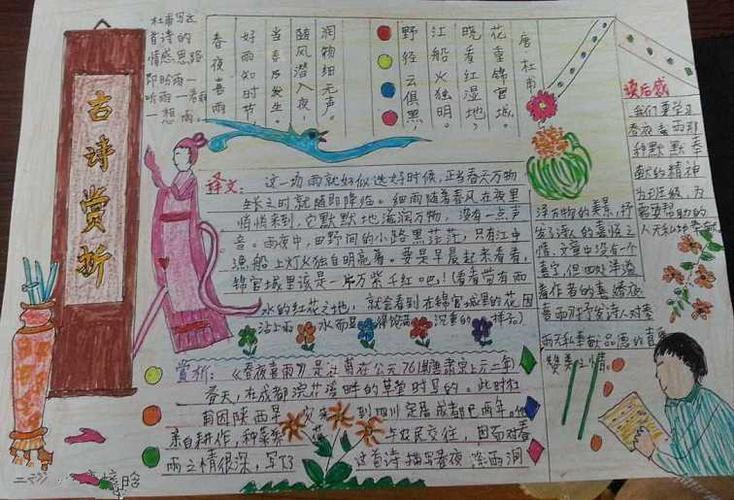 古诗赏析
杜甫写这
首诗的
情感思路
即盼雨一
听雨一看雨
一想雨。
春夜喜雨
好雨知时节,
当春乃发生。
随风潜入夜,
润物细无声。
野径云俱黑,
江船火独明。
晓看红湿地,
花重锦官城。
唐 杜甫
译文: 这一场雨就好似选好时候,正当春天万物
生长之时就随即降临。细雨随着春风在夜里
悄悄来到,它默默地滋润万物,没有一点声
音。雨夜中,田野间的小路黑茫茫,只有江中
渔船上灯火独自明亮着。要是早晨起来看看,
锦官城里该是一片万紫千红吧!(看看带有雨
水的红花之地,就会看到在锦官城里的花因
沾上雨水而显得饱满沉重的样子)
赏析:《春夜喜雨》是杜甫在公元761(唐肃宗上元二年)
春天,在成都浣花溪畔的草堂时写的。此时杜
甫因陕西旱灾来到四川定居成都已两年。他
亲自耕作,种菜养花与农民交往,因而对春
雨之情很深,写了这首诗描写春夜降雨润
泽万物的美景,抒
发了诗人的喜悦之
情。文章中没有一个
喜字,但四处洋溢
着作者的喜
雨
赞美之情。
读后感
我们要学习
春夜喜雨那
种默默奉
献的精神
为班级,为
需要帮助的
人无私地奉献